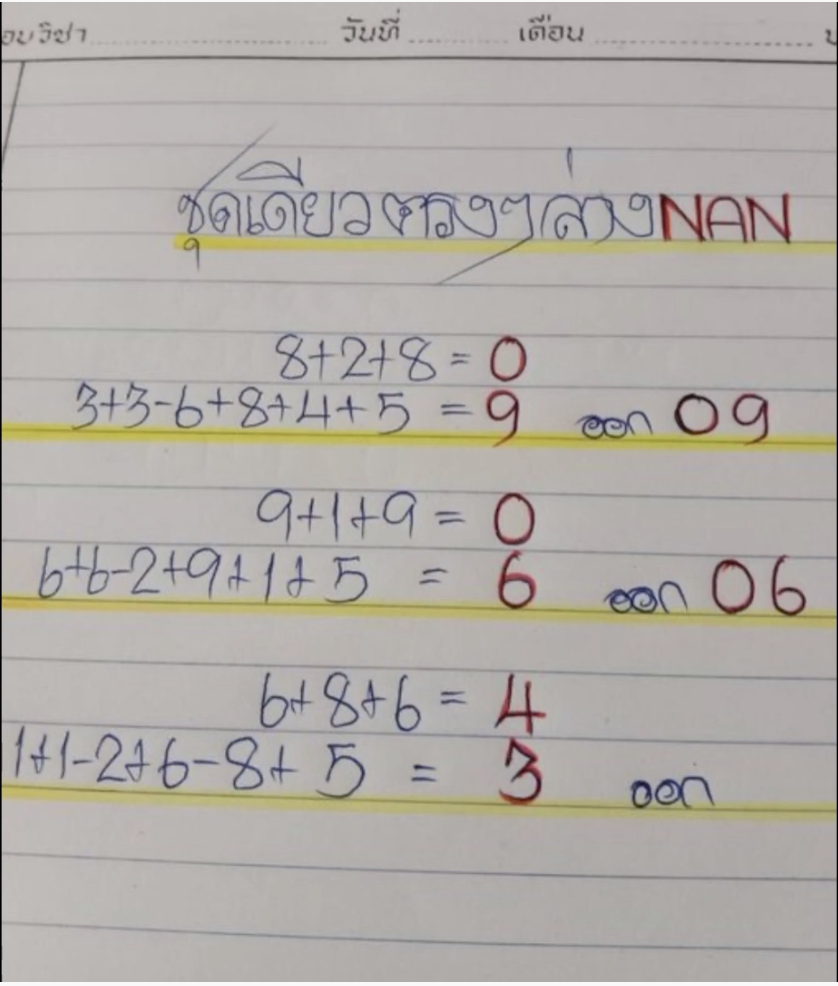 อบวิชา วันที่ เดือน
ชุดเดียวตรงๆล่างNAN
8+2+8=0
3+3-6+8+4+5=9 ออก 09
9+1+9=0
6+6-2+9+1+5=6 ออก 06
6+8+6=4
1+1-2+6-8+5=3 ออก